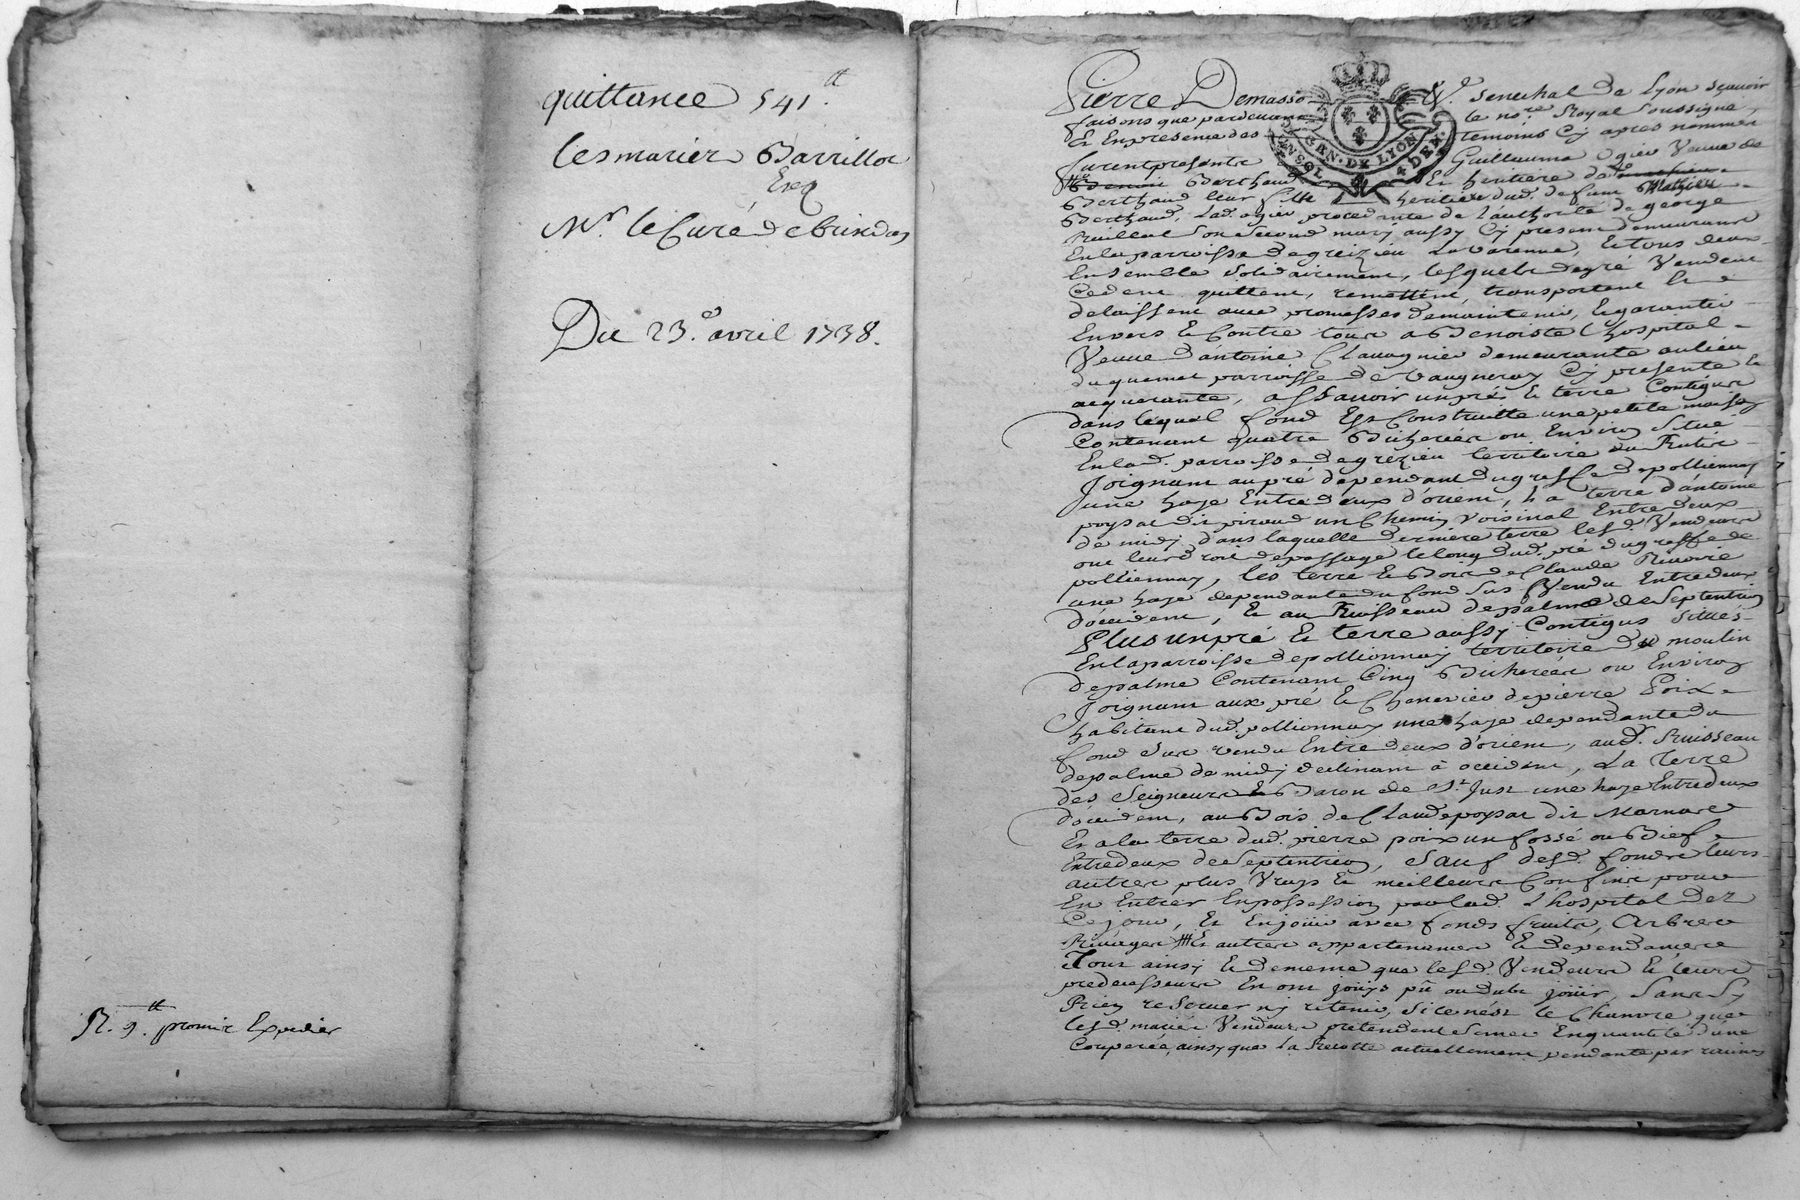 quittance 541.tt
les mariez Barrillot
Et
Mr. le Curé de brindas
Du 23.e avril 1738.
R. 9.tt promis Expedier
Pierre Demasso Sr. Senechal de Lyon sçavoir
faisons que pardevant le nore. Royal Soussigné
Et En presence des temoins Cy apres nommez
furent presents Guillauma Ogier Veuve de
Berthaud Et heritiere de
Berthaud leur fils heritier dud. defunt Mathieu
Berthaud, Lad. ogier procedante de l'authorité de george
son second mary aussy Cy present demeurants
En la parroisse de greizieu Lavarenne, Et tous deux
Ensemble solidairement, lesquels de gré Vendent
Cedent quittent, remettent, transportent Et
delaissent avec promesses de maintenir, Et garantir
Envers Et Contre tous a Benoiste Lhospital
Veuve d'antoine Clavagnier demeurante au lieu
duquemet parroisse de Vaugneray Cy presente Et
acquerante, assavoir un pré Et terre Contigus
dans lequel fond Est Construitte une petite maison
Contenant quatre Bicherées ou Environ Situé
En lad. parroisse de grézieu territoire du
Joignant au pré dependant du greffe de pollionnay
une haye Entredeux d'orient, la terre d'antoine
poysat dit giraud un Chemin Voisinal Entredeux
de midy dans laquelle derniere terre lesd. Vendeurs
ont leur droit de passage le long dud. pré du greffe de
pollionnay, les terre Et Bois de Claude Rivoire
une haye dependante du fond sus Vendu Entredeux
d'occident, Et au Ruisseau de palme de Septentrion
Plus un pré Et terre aussy Contigus situés
En la parroisse de pollionnay territoire du moulin
de palme Contenant Cinq Bicherées ou Environ
Joignant aux pré Et Chenevier de pierre Poix
habitant dud. pollionnay une haye dependante du
fond sus vendu Entredeux d'orient, aud. Ruisseau
de palme de midy declinant à occident, La Terre
des Seigneurs Baron de St. Just une haye Entredeux
d'occident, au Bois de Claude poysat dit Marnas
Et a la terre dud. pierre poix un fossé ou Bief
Entredeux de Septentrion, sauf desd. fonds leurs
autres plus Vrays Et meilleurs Confins pour
En Entrer En possession par lad. Lhospital dez
Ce jour, Et En joüir avec fonds fruits, Arbres
Rivages Et autres appartenances Et dependances
Tout ainsy Et de meme que lesd. Vendeurs Et leurs
predecesseurs En ont joüys pû ou dub joüir, Sans sy
Rien reserver ny retenir, si ce n'est le Chanvre que
lesd. mariez Vendeurs pretendent semer En quantité d'une
Couperée, ainsy que la Recolte actuellement pendante par racines